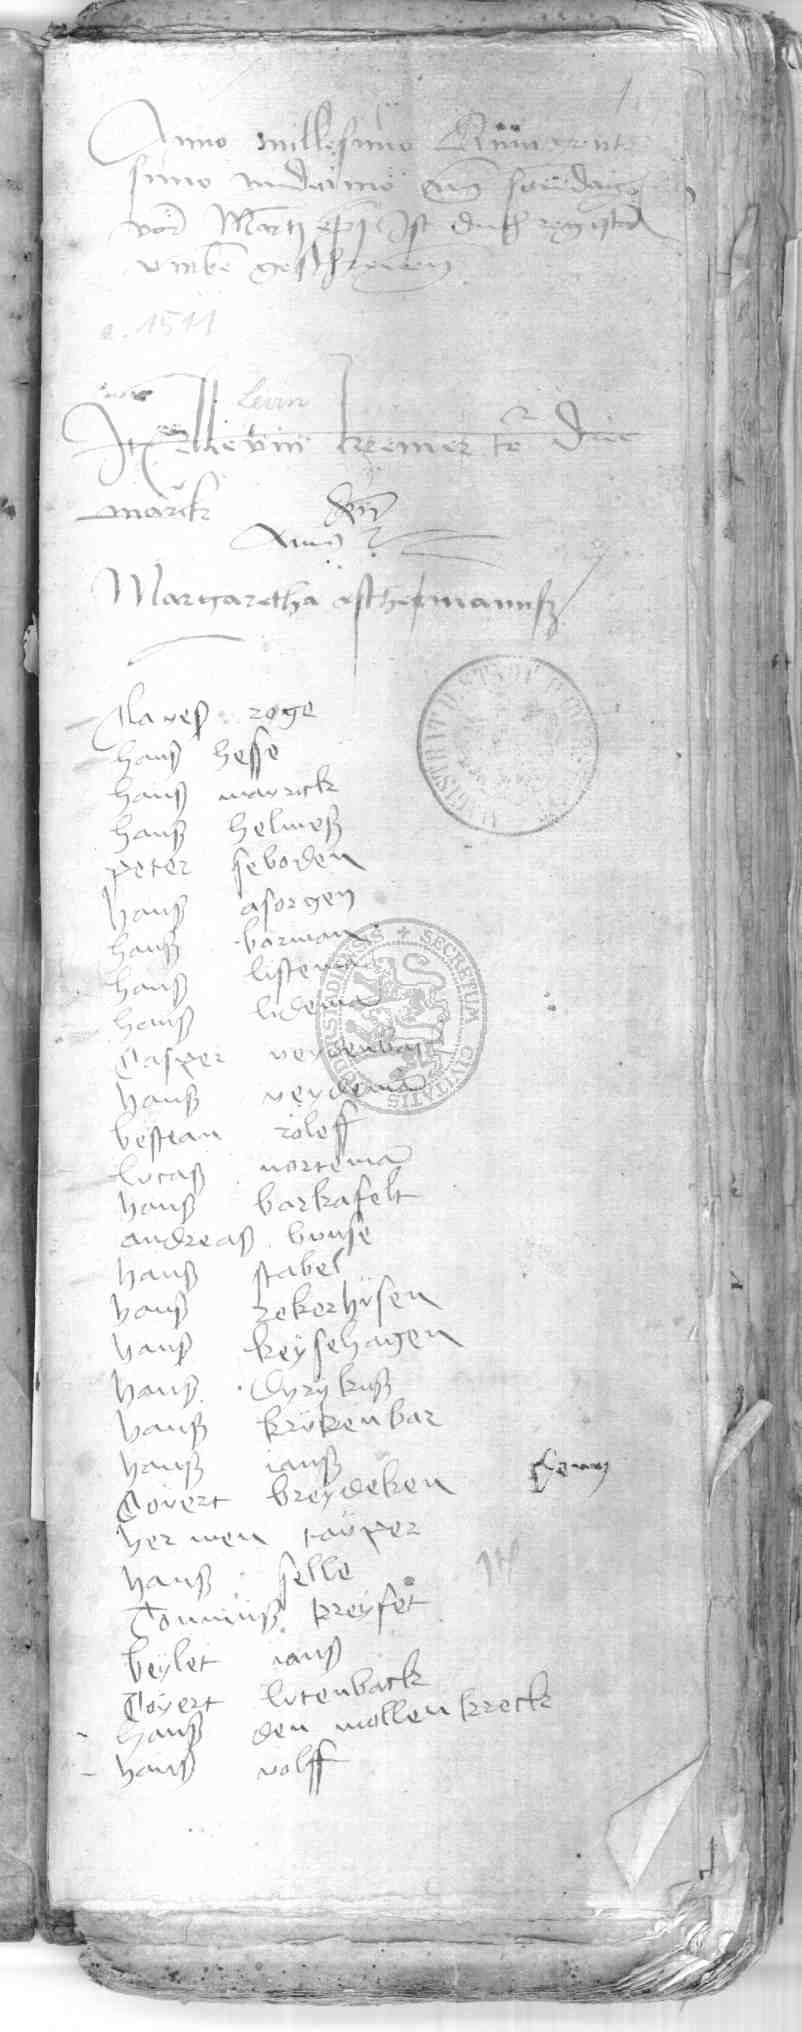 1
Anno millesimo Quingente
simo undecimo am sondage
vor Martj epi ist duth register
umbe geschreven
a. 1511
Levin
Item levin kremer tr dre
marck
Margaretha esthermannß
Claweß roge
hanß hesse
hanß maurick
hanß helmeß
peter seboden
hanß asorgen
hanß borman
hanß listema
hanß lidema
Casper
hanß veydema
bestian roleff
lucaß nortema
hanß barkafelt
andreaß bonse
hanß stabel
hanß zekerhusen
hanß keysehagen
hanß Cyrykuß
hanß krukenbar
hanß ianß
Covert breydeken
hermen
hanß selle
Tonnyuß kreyset
heylet ianß
Covert lutenback
hanß den mollenkreck
hanß volff
SECRETUM CIVITATIS